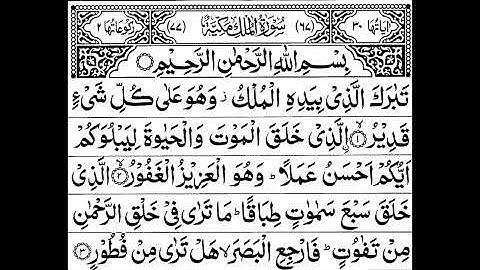 اٰيَاتُهَا ٣٠ (٦٧) سُوْرَةُ الْمُلْكِ مَكِّيَّةٌ (٧٧) رُكُوْعَاتُهَا ٢
بِسْمِ اللّٰهِ الرَّحْمٰنِ الرَّحِيْمِ
تَبٰرَكَ الَّذِيْ بِيَدِهِ الْمُلْكُ ز وَهُوَ عَلٰى كُلِّ شَيْءٍ
قَدِيْرُ ۙ﴿١﴾ الَّذِيْ خَلَقَ الْمَوْتَ وَالْحَيٰوةَ لِيَبْلُوَكُمْ
اَيُّكُمْ اَحْسَنُ عَمَلًا ؕ وَهُوَ الْعَزِيْزُ الْغَفُوْرُ ۙ﴿٢﴾ الَّذِيْ
خَلَقَ سَبْعَ سَمٰوٰتٍ طِبَاقًا ؕ مَا تَرٰى فِيْ خَلْقِ الرَّحْمٰنِ
مِنْ تَفٰوُتٍ ؕ فَارْجِعِ الْبَصَرَ ۙ هَلْ تَرٰى مِنْ فُطُوْرٍ ﴿٣﴾